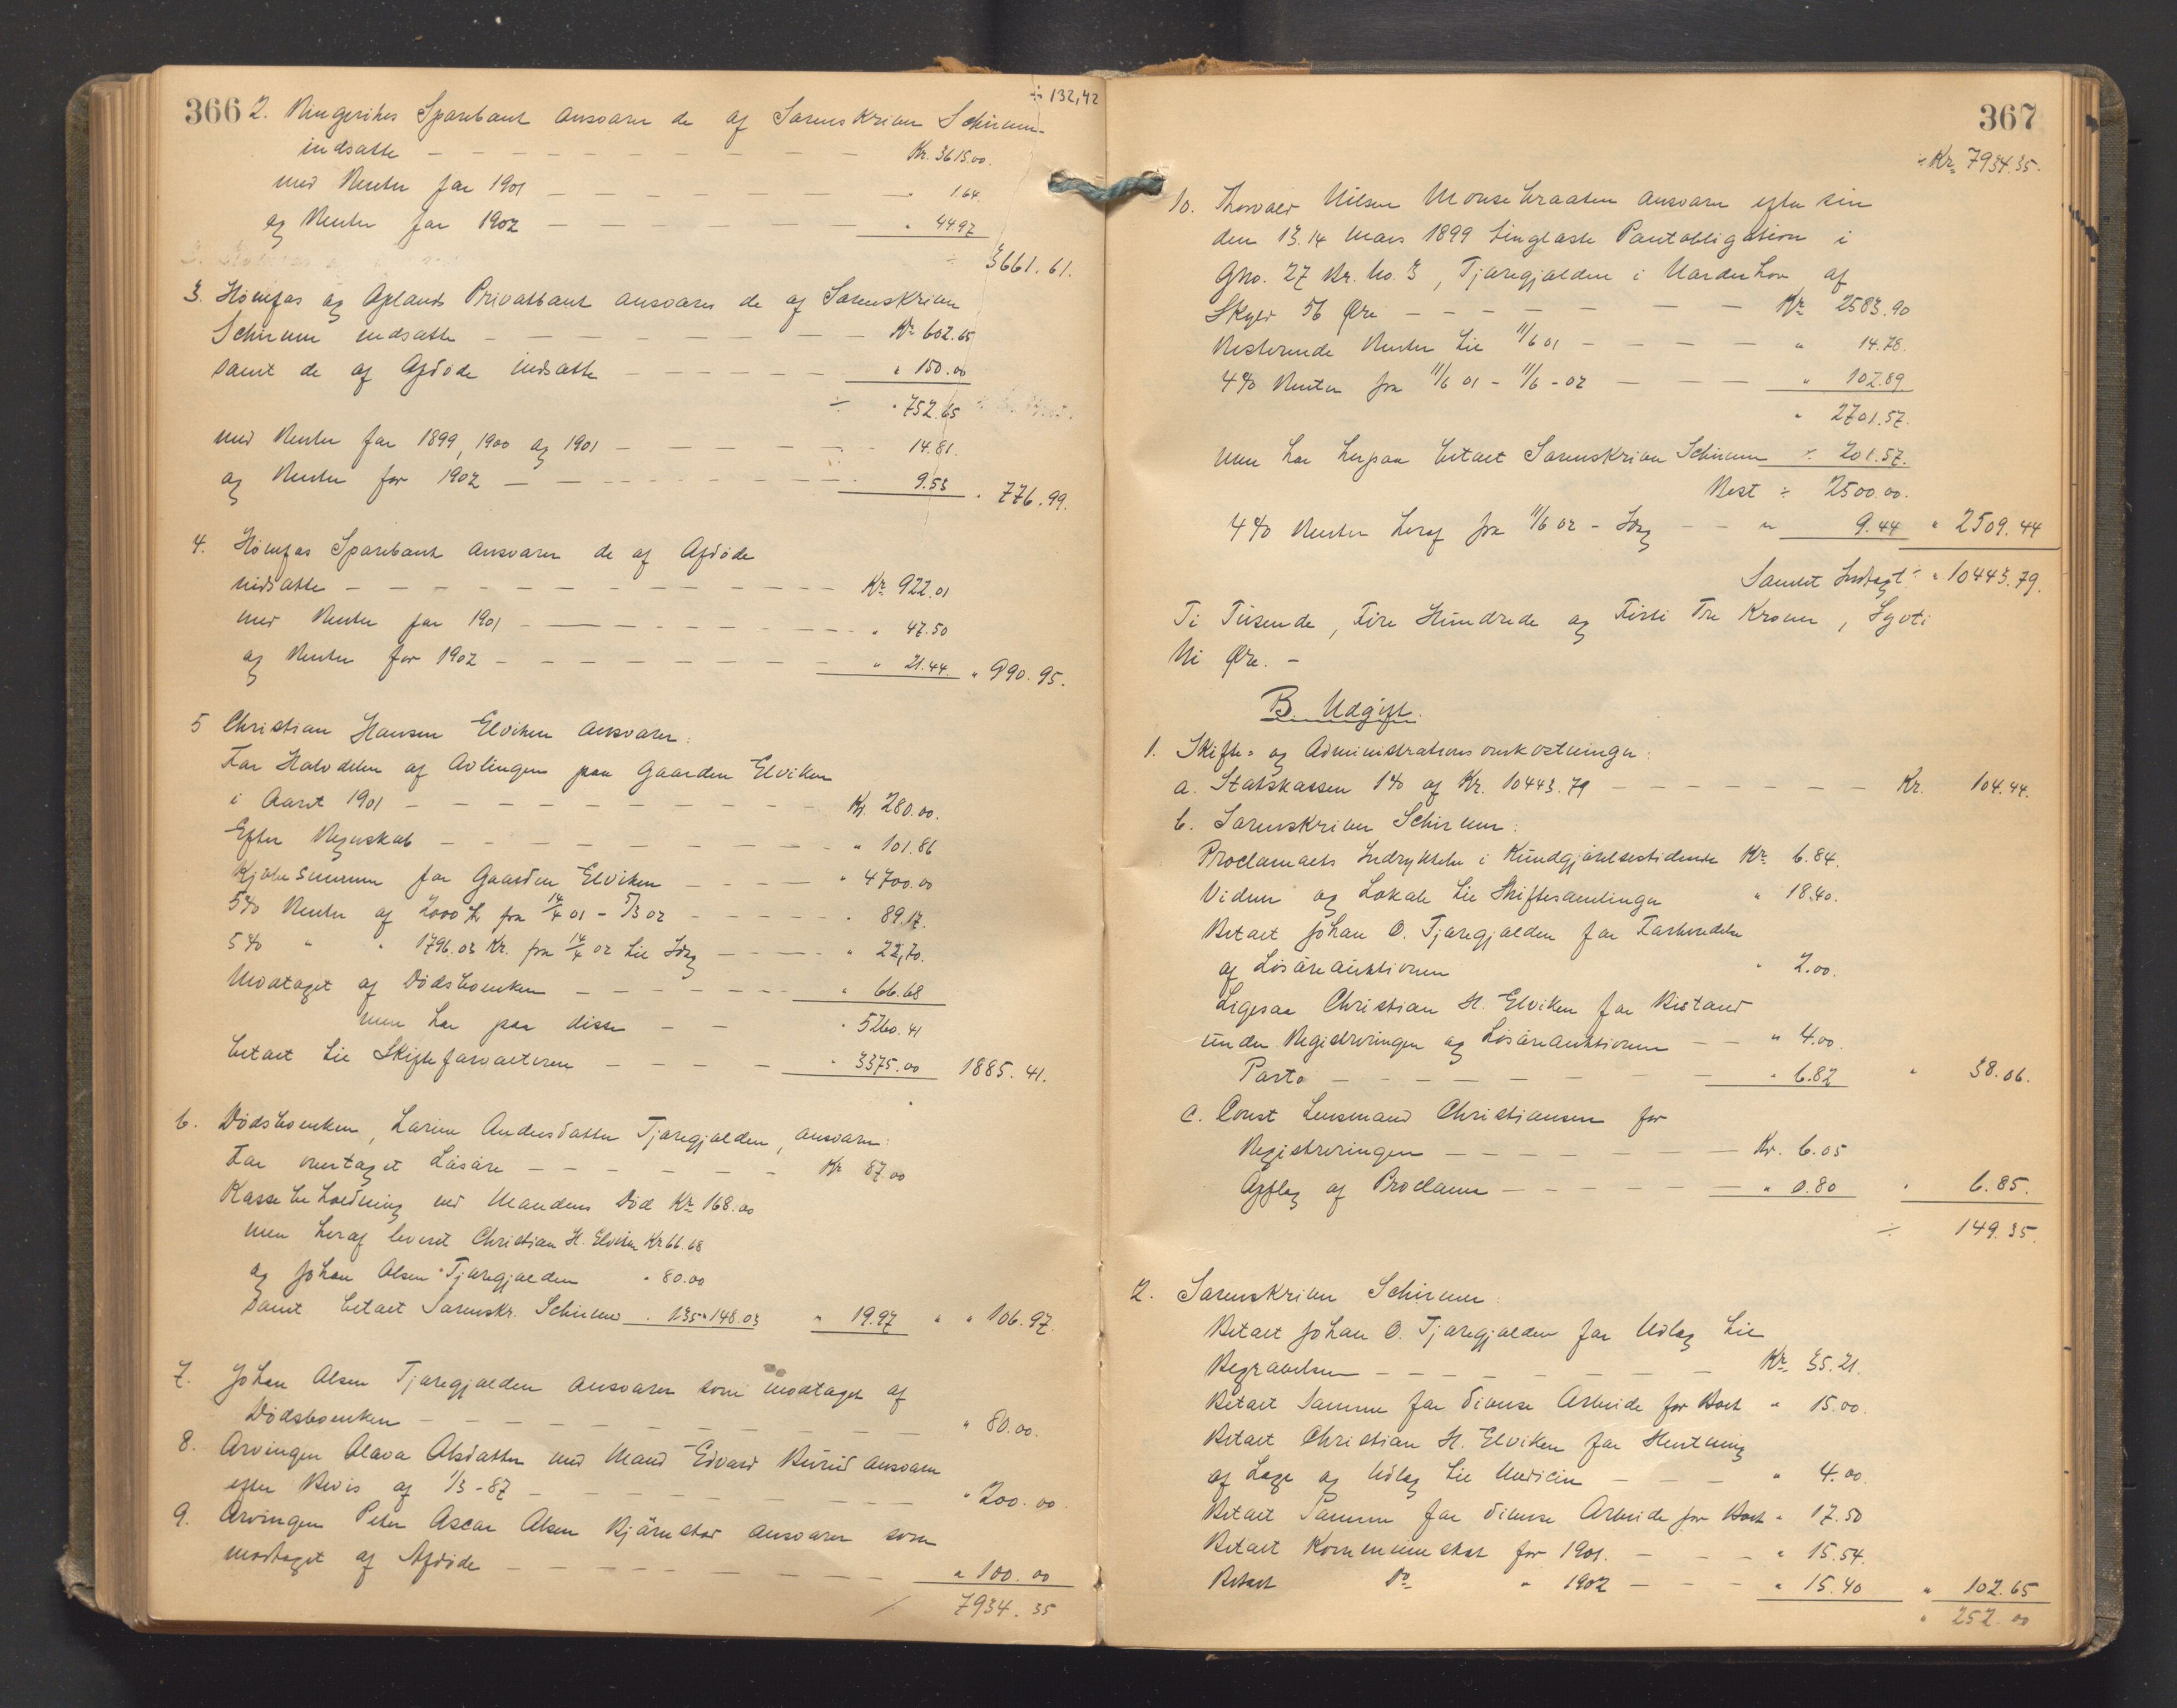 366
÷ 132,42
2. Ringerikes Sparebank ansvarer de af Sorenskriver Schirmer
indsatte Kr. 3615.00.
med Renter for 1901 " 1.64.
og Renter for 1902 " 44.97
÷ 3661.61.
3. Hønefos og Oplands Privatbank ansvarer de af Sorenskriver
Schirmer indsatte Kr 602.65
samt de af Afdøde indsatte " 150.00
÷ " 752.65
med Renter for 1899, 1900 og 1901 - 14.81.
og Renter for 1902 - 9.53 " 776.99.
4. Hønefos Sparebank ansvarer de af Afdøde
indsatte Kr 922.01
med Renter for 1901 - " 47.50
og Renter for 1902 - " 21.44. " 990.95.
5 Christian Hansen Elviken ansvarer:
For Halvdelen af Avlingen paa Gaarden Elviken
i Aaret 1901 - Kr. 280.00.
Efter Regnskab - " 101.86
Kjøbesummen for Gaarden Elviken - " 4700.00
5% Renter af 2000 Kr fra 14/4 01 - 5/3 02 - " 89.17.
5% " " 1796.03 Kr. fra 14/4 02 til Idag - " 22,70.
Modtaget af Dødsboenken - " 66.68
men har paa disse - " 5260.41
betalt til Skifteforvalteren - " 3375.00 1885.41.
6. Dødsboenken, Larine Andersdatter Tjæregjælden, ansvarer:
For overtaget Løsøre - Kr 87.00
Kassebeholdning ved Mandens Død Kr 168.00
men heraf leveret Christian H. Elviken Kr 66.68
og Johan Olsen Tjæregjælden " 80.00
samt betalt Sorenskr. Schirmer " 1.35 " 148.03 " 19.97 " " 106.97.
7. Johan Olsen Tjæregjælden ansvarer som modtaget af
Dødsboenken - " 80.00.
8. Arvingen Olava Olsdatter med Mand Edvard Bûrûd ansvarer
efter Bevis af 1/3-87 - " 200.00.
9. Arvingen Peter Oscar Olsen Bjørnstad ansvarer som
modtaget af Afdøde - " 100.00
7934.35
367
÷ Kr. 7934.35.
10. Thorvald Nilsen Monsebraaten ansvarer efter sin
den 13.14 Mars 1899 tinglæste Pantobligation i
Gno. 27 Br. No. 3, Tjæregjælden i Norderhov af
Skyld 56 Øre - Kr 2583.90
Resterende Renter til 11/6 01 - " 14.78.
4% Renter fra 11/6 01 - 11/6 - 02 - " 102.89
" 2701.57.
men har herpaa betalt Sorenskriver Schirmer " 201.57.
Rest ÷ 2500.00.
4% Renter heraf fra 11/6 02 - Idag - " 9.44 " 2509.44
Samlet Indtægt ÷ " 10443.79.
Ti Tûsende, Fire Hûndrede og Firti Tre Kroner, Sytti
Ni Øre. -
B. Udgift.
1. Skifte- og Administrationsomkostninger:
a. Statskassen 1% af Kr. 10443.79 - Kr. 104.44.
b. Sorenskriver Schirmer:
Proclamaets Indrykkelse i Kûndgjørelsestidende Kr 6.84.
Vidner og Lokale til Skiftesamlinger " 18.40.
Betalt Johan O. Tjæregjælden for Forberedelse
af Løsøreaûktionen " 2.00.
Ligesaa Christian H. Elviken for Bistand
ûnder Registreringen og Løsøreauktionen - " 4.00.
Porto - " 6.82 " 38.06.
c. Const Lensmand Christiansen for
Registreringen - Kr. 6.05
Opslag af Proclama - " 0.80 " 6.85.
÷ 149.35.
2. Sorenskriver Schirmer:
Betalt Johan O. Tjæregjælden for Udlæg til
Begravelsen - Kr. 35.21.
Betalt Samme for diverse Arbeide for Boet " 15.00.
Betalt Christian H. Elviken for Hentning
af Læge og Udlæg til Medicin - " 4.00.
Betalt Samme for diverse Arbeide for Boet " 17.50
Betalt Kommuneskat for 1901. - " 15.54.
Betalt Do " 1902 - " 15.40 " 102.65
" 252.00